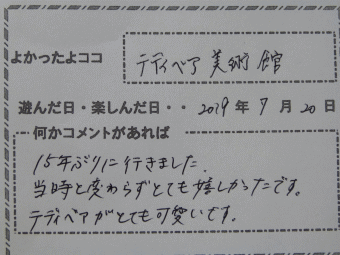 よかったよココ テディベア美術館
遊んだ日・楽しんだ日・・ 2019年 7月 20日
何かコメントがあれば
15年ぶりに行きました.
当時と変わらずとても嬉しかったです。
テディベアがとても可愛いです。